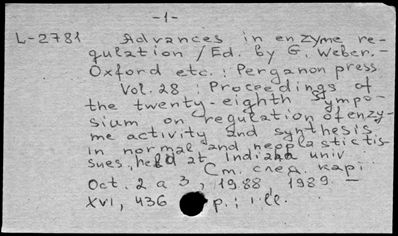 -1-
L-2781 Advances in enzyme re-
gulation / Ed. by G. Weber. -
Oxford etc. : Perganon press
Vol. 28 : Proceedings of
the twenty-eighth Sympo-
sium on regulation of enzy-
me activity and synthesis
in normal and neoplastic tis-
sues, held at Indiana univ
См. след. карт
Oct. 2 a 3, 1988, 1989. -
XVI, 436 p. : ill.